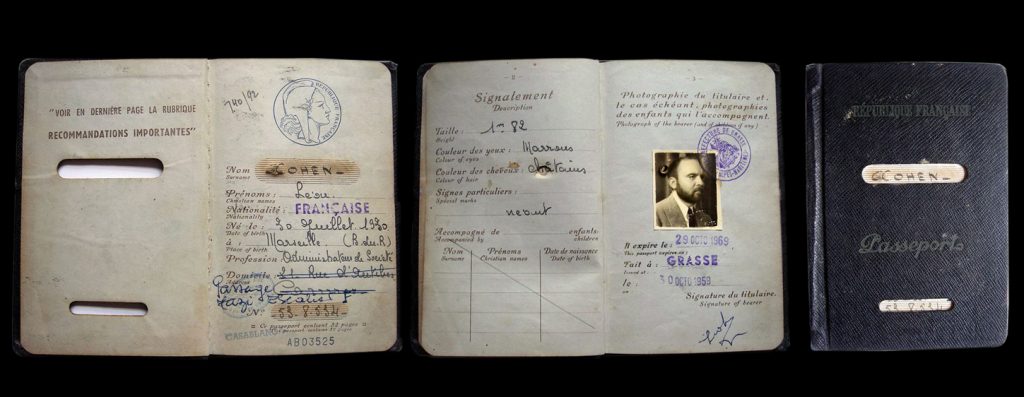 "VOIR EN DERNIÈRE PAGE LA RUBRIQUE
RECOMMANDATIONS IMPORTANTES"
740/92
RÉPUBLIQUE FRANÇAISE
Nom COHEN
Surname
Prénoms: Léon
Christian names
Nationalité: FRANÇAISE
Nationality
Né le: 30 Juillet 1930
Date of birth
à: Marseille (B. du R)
Place of birth
Profession: Administrateur de Société
Domicile: 51 Rue d'Antibes
Passage
N° 53.8.534
Ce passeport contient 32 pages
CASABLANCA
AB03525
- 2 -
Signalement
Description
Taille: 1m 82
Height
Couleur des yeux: Marrons
Colour of eyes
Couleur des cheveux: châtains
Colour of hair
Signes particuliers:
Special marks
néant
Accompagné de enfants:
Accompanied by children
Nom Prénoms Date de naissance
Surname Christian names Date of birth
- 3 -
Photographie du titulaire et,
le cas échéant, photographies
des enfants qui l'accompagnent.
Photograph of the bearer (and of children if any)
Il expire le: 29 OCTO 1969
This passport expires
Fait à: GRASSE
Issued at
le: 30 OCTO 1959
Signature du titulaire.
Signature of bearer
RÉPUBLIQUE FRANÇAISE
COHEN
Passeport
53.8.534